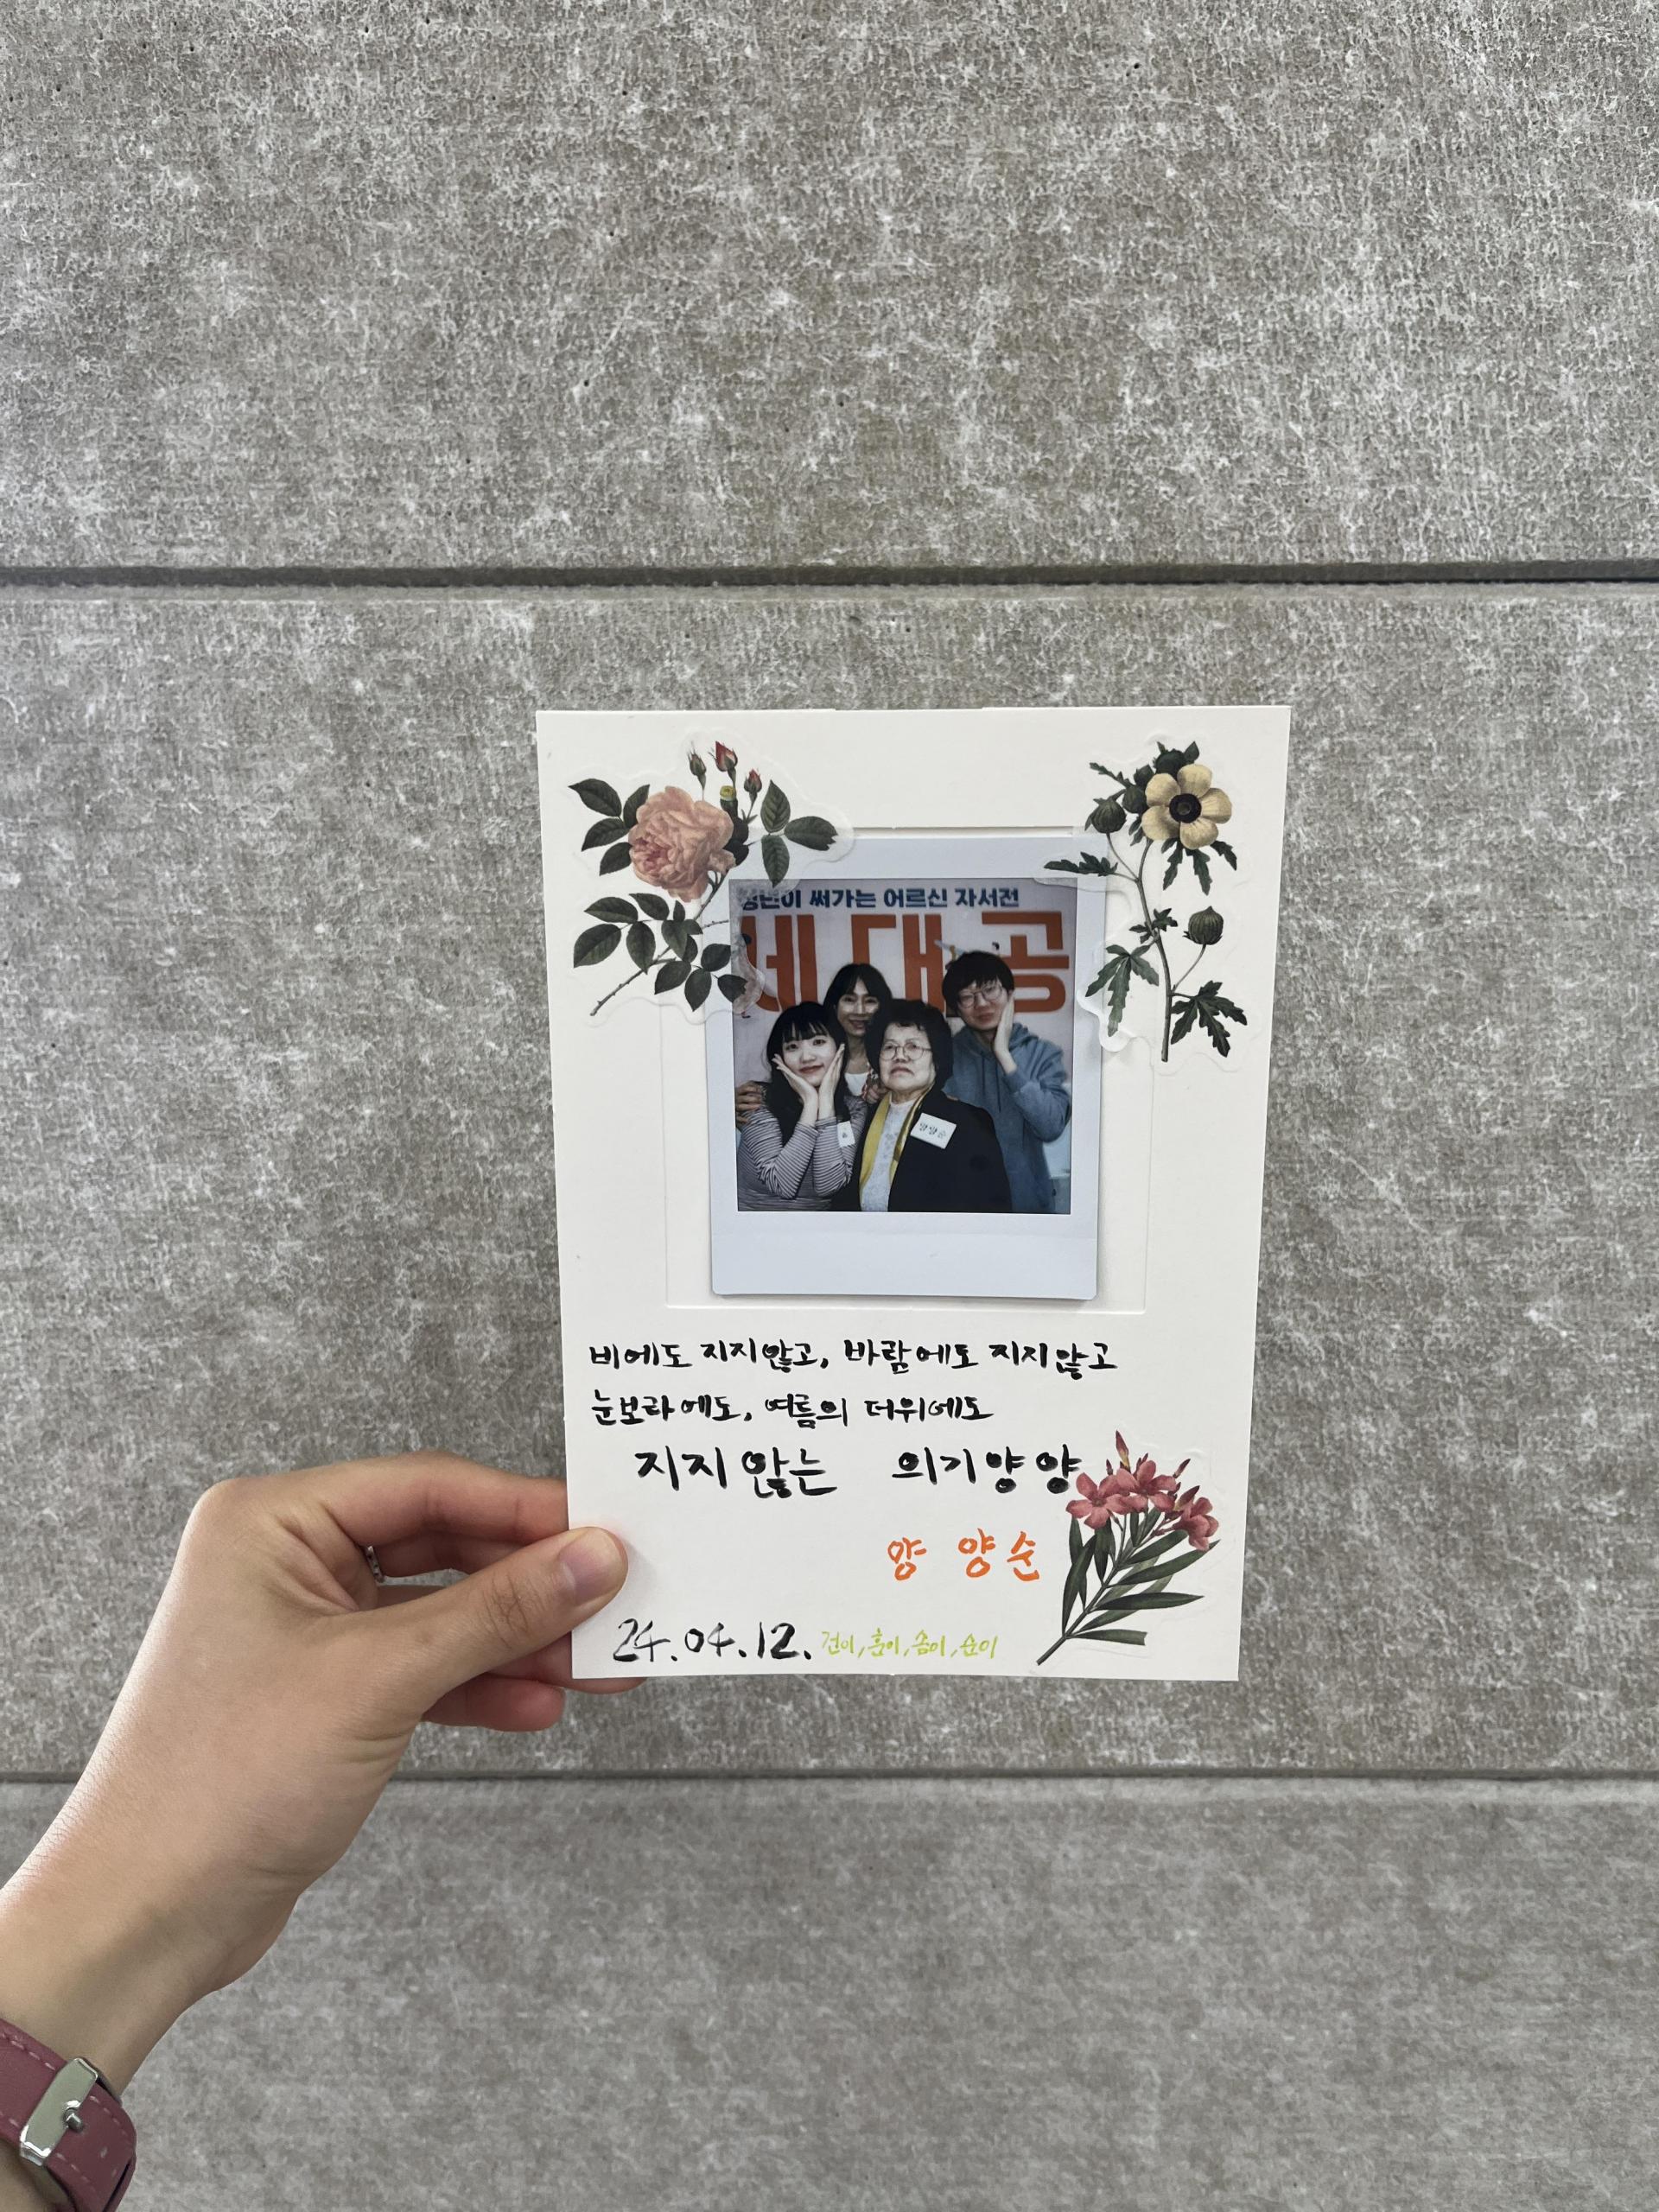 청년이 써가는 어르신 자서전
세대공
양양순
비에도 지지않고, 바람에도 지지않고
눈보라에도, 여름의 더위에도
지지않는 의기양양
양 양순
24.04.12. 건이, 훈이, 솜이, 순이